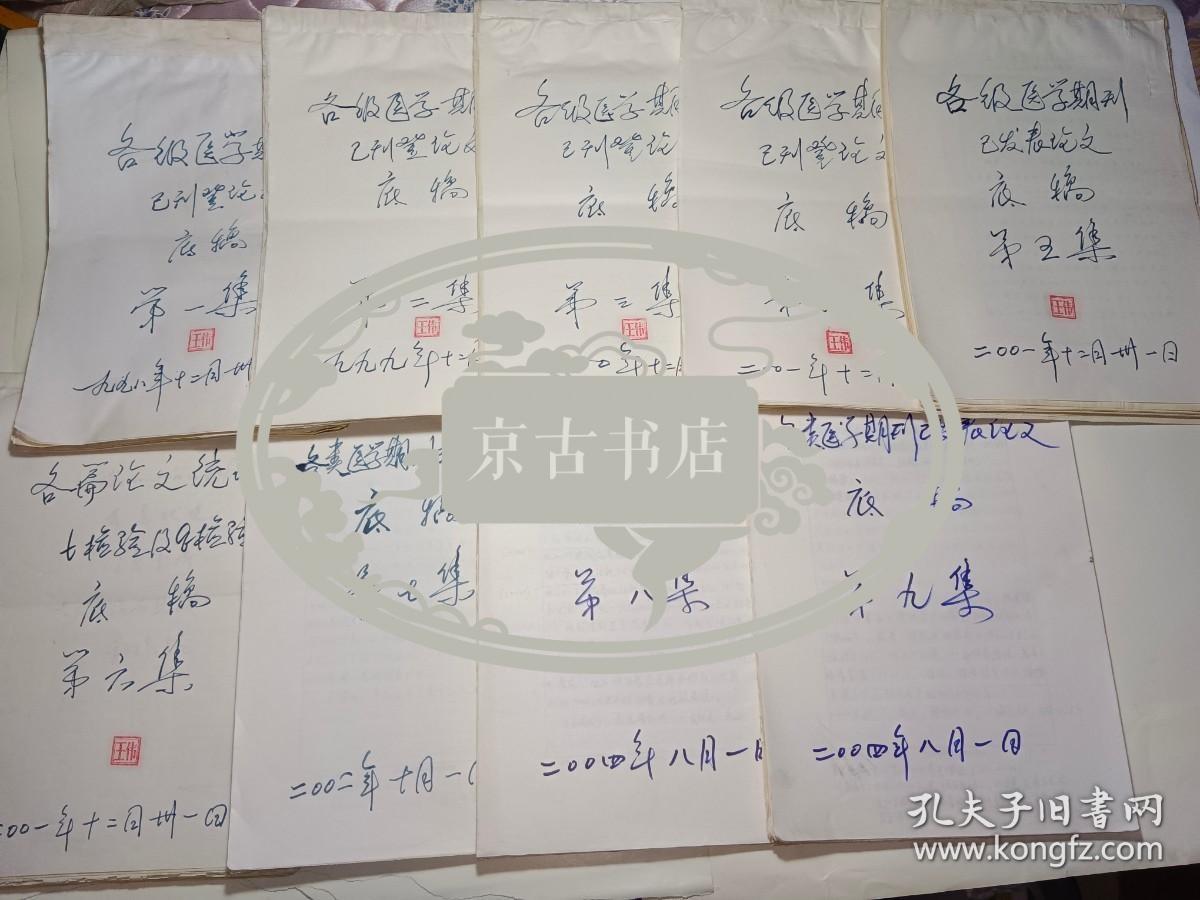 各级医学期
已刊登论
底稿
第一集
王伟
一九九八年十二月卅
各级医学期
已刊登论文
底稿
第二集
王伟
一九九九年十二
各级医学期
已刊登论
底稿
第三集
王伟
年十二月
各级医学期
已刊登论文
底稿
集
王伟
二〇〇一年十二
各级医学期刊
已发表论文
底稿
第五集
王伟
二〇〇一年十二月卅一日
各篇论文统
t检验及q检验
底稿
第六集
王伟
二〇〇一年十二月卅一日
各类医学期
底稿
集
二〇〇二年十月一
第八集
二〇〇四年八月一日
各类医学期刊已发表论文
底稿
第九集
二〇〇四年八月一日
京古书店
孔夫子旧书网
www.kongfz.com